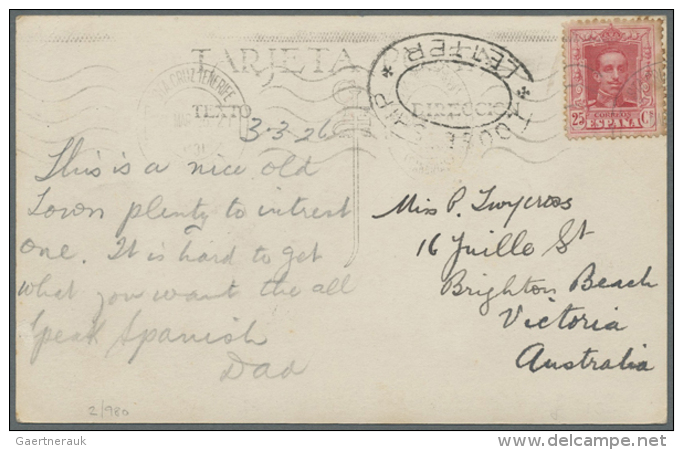 TARJETA
TEXTO
DIRECCION
STA CRUZ-TENERIFE
* PAQUEBOT *
SHIP LETTER
25 CORREOS Cs
ESPAÑA
3-3-26
This is a nice old
Town plenty to intrest
one. It is hard to get
what you want the all
speak Spanish
Dad
Miss P. Twycross
16 St
Brighton Beach
Victoria
Australia
2/980
Gaertnerauk
www.delcampe.net